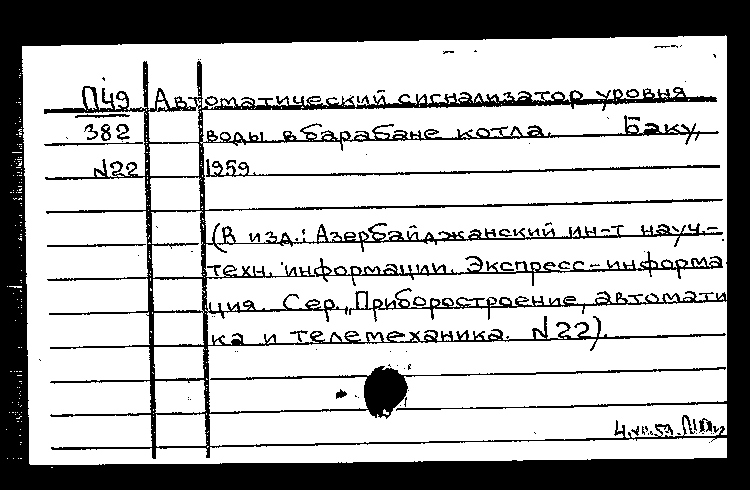 П49 Автоматический сигнализатор уровня
382 воды в барабане котла. Баку,
N22 1959.
(В изд.: Азербайджанский ин-т науч.-
техн. информации. Экспресс-информа
ция. Сер. „Приборостроение, автомати
ка и телемеханика. N22).